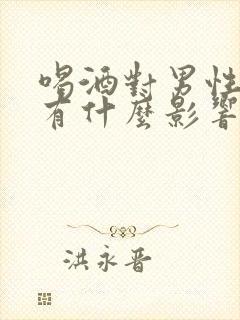 喝酒對男性
有什麼影響
洪永晋